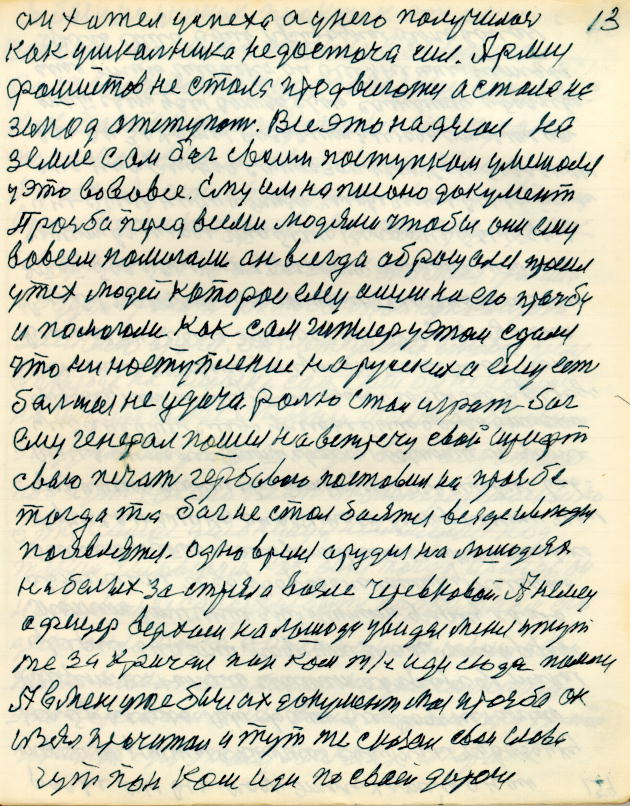 13
он хотел успеха а у него получилося
как у школника недосточа сил. Армия
фашистов не стала продвигатя а стала на
запод атступат. Все это наделал на
земле сам бог своим поступком умешался
у это вовсвсе. Ему им написано документ
Прозба перед всеми людями чтобы они ему
вовсем помогали он всегда обращался просил
у тех людей каторое ему ишли на его прозбу
и помогали. Как сам гитлер у этом сдался
что ни наступление на руских а ему ест
балшая не удача. ролю стал играт бог
ему генерал пошел на встречу свой шрифт
сваю печат гербовою поставил на прозбе
тогда та бог не стал баятся везде и людям
появлятся. Одно время арудия на лошадях
на белых застряла возле черевковой. А немец
афецер верхом на лошади увидел меня и тут
же за кричал пан ком гир иди сюда помоги
А в меня уже был их документ моя прозба он
взял прочитал и тут же сказал свои слова
гут пан ком иди по своей дороги